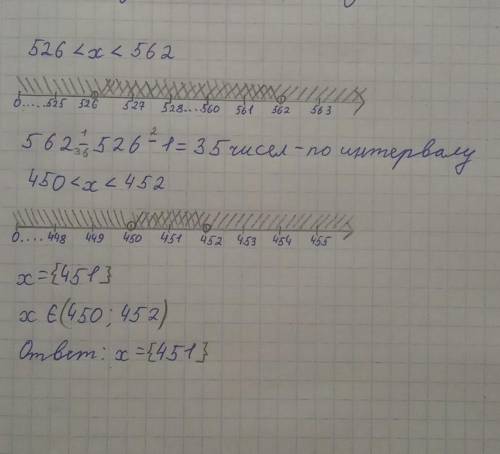 526 < x < 562
0.... 525 526 527 528...560 561 562 563
562 - 526 - 1 = 35 чисел - по интервалу
1 2
36
450 < x < 452
0.... 448 449 450 451 452 453 454 455
x = {451}
x ∈ (450; 452)
Ответ: x = {451}